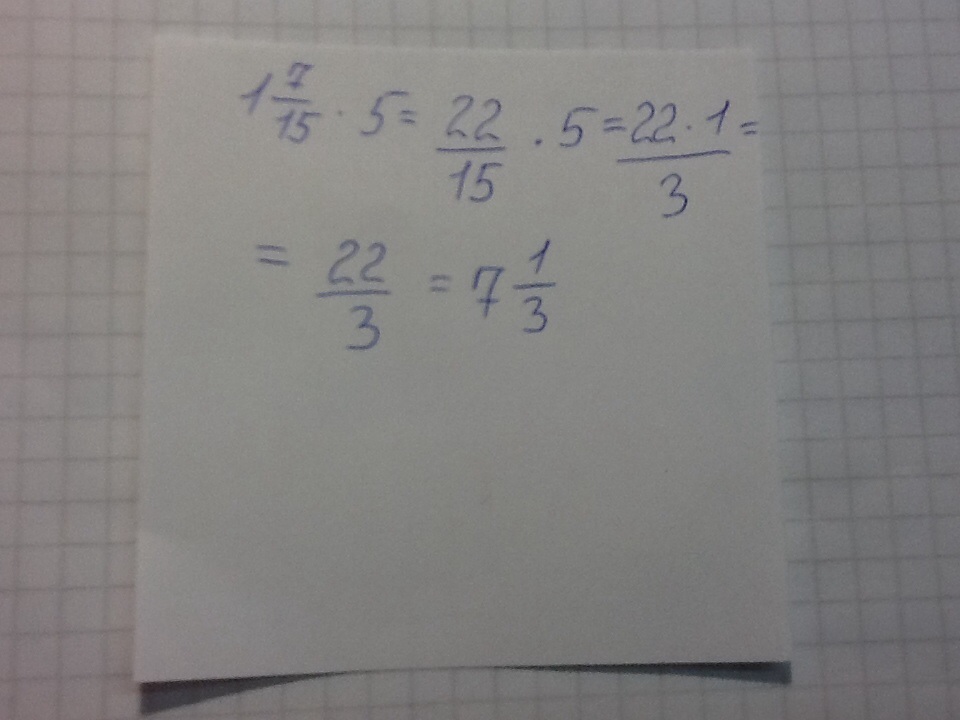 1 7/15 · 5 = 22/15 · 5 = 22 · 1/3 =
= 22/3 = 7 1/3